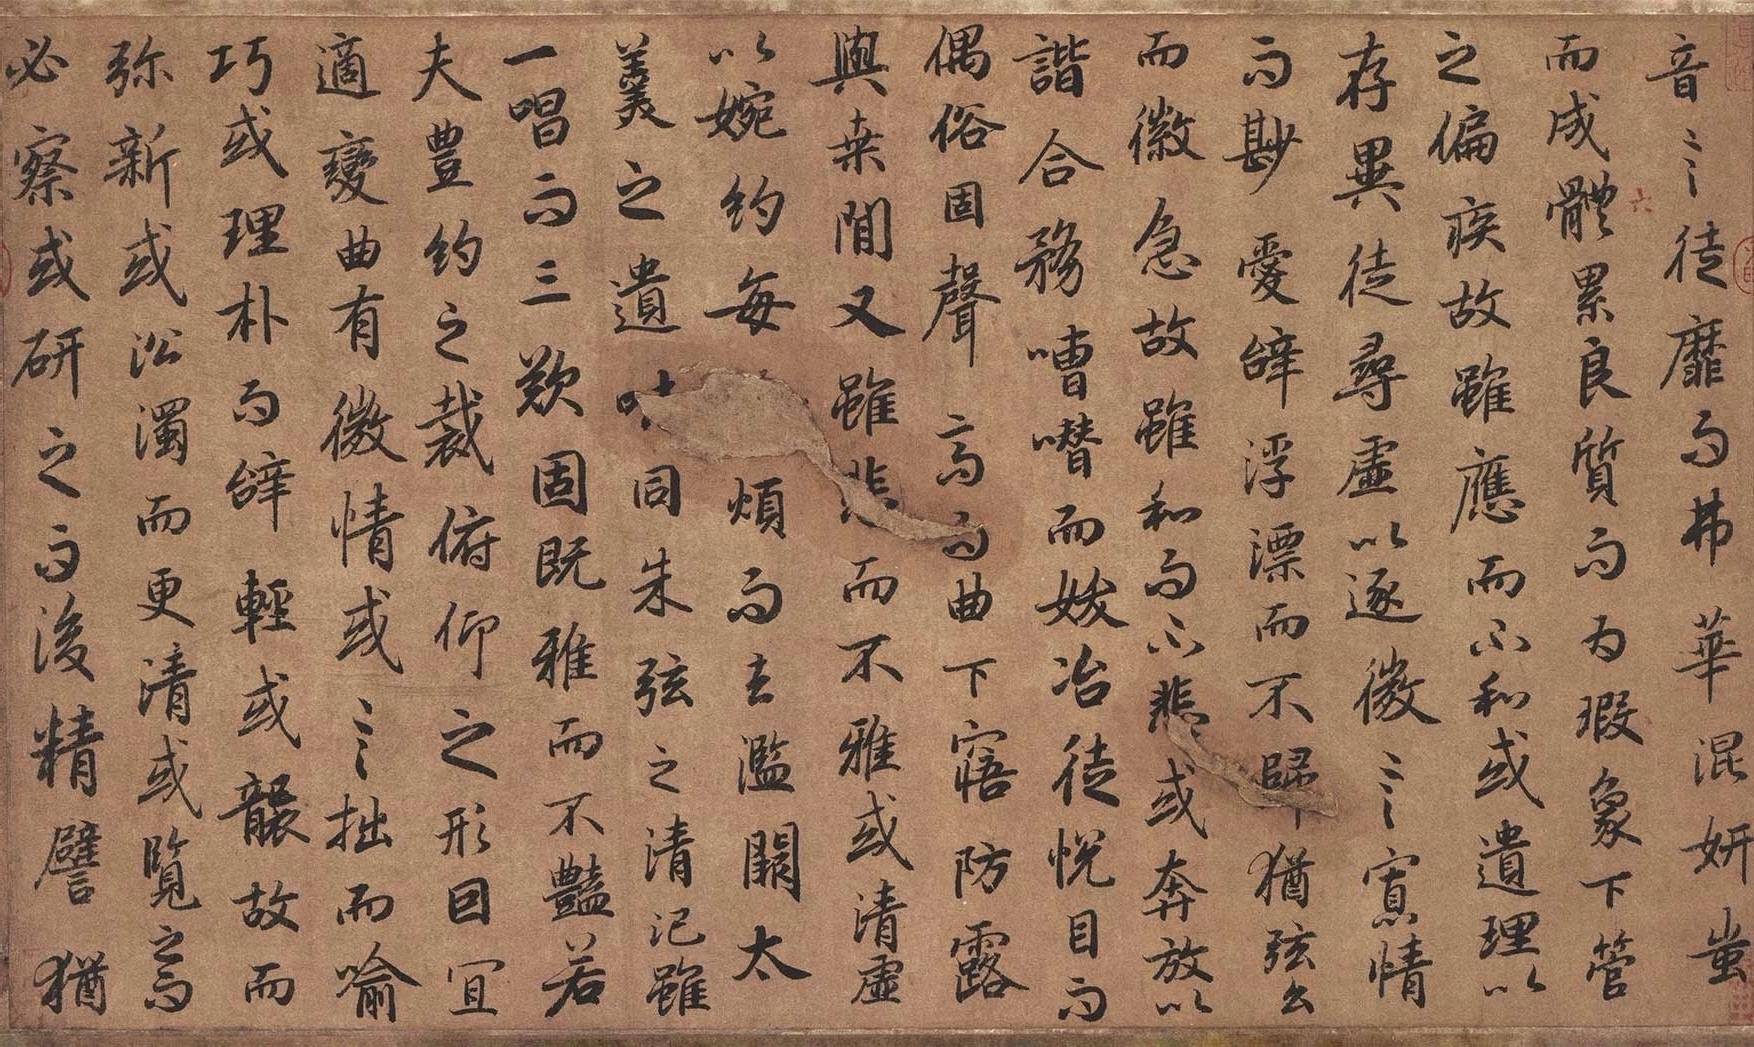 音言徒靡而弗華混妍蚩
而成體累良質而為瑕象下管
之偏疾故雖應而不和或遺理以
存異徒尋虛以逐微言寡情
而尠愛辭浮漂而不歸猶弦么
而徽急故雖和而不悲或奔放以
諧合務嘈噆而妖冶徒悅目而
偶俗固聲高而曲下寤防露
與桑間又雖悲而不雅或清虛
以婉約每煩而去濫闕太
羹之遺味同朱弦之清氾雖
一唱而三歎固既雅而不豔若
夫豐約之裁俯仰之形因宜
適變曲有微情或言拙而喻
巧或理朴而辭輕或襲故而
弥新或沿濁而更清或覽之而
必察或研之而後精譬猶